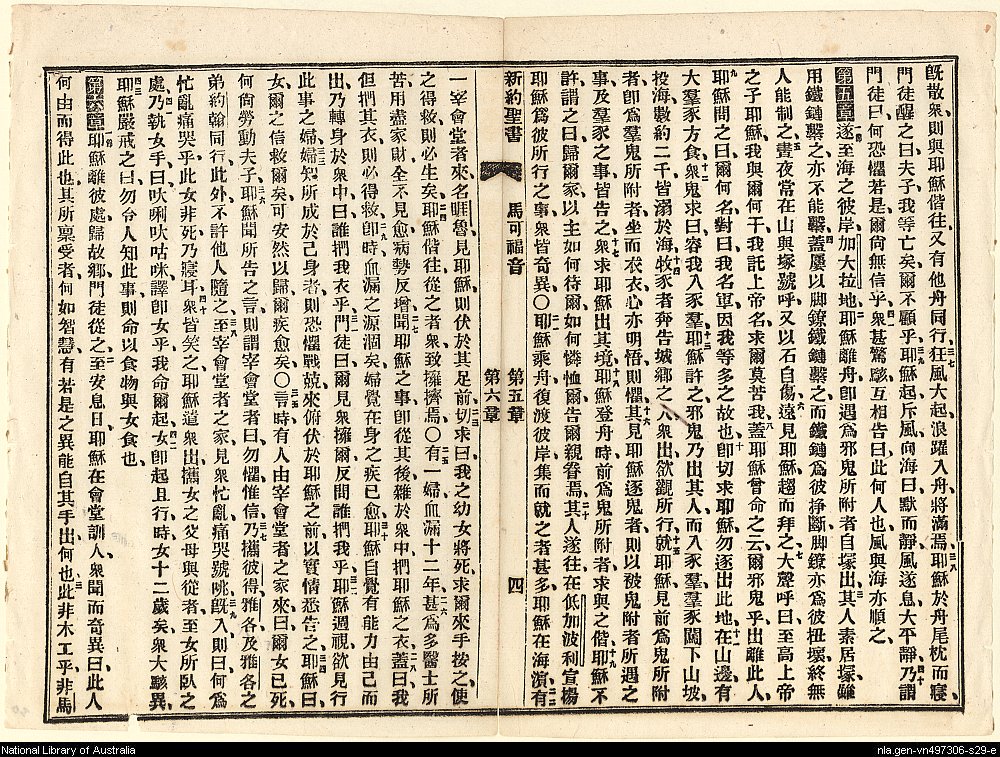 既散衆則與耶穌偕往又有他舟同行三七狂風大起浪躍入舟將滿焉三八耶穌於舟尾枕而寢
門徒醒之曰夫子我等亡矣爾不顧乎三九耶穌起斥風向海曰默而靜風遂息大平靜四十乃謂
門徒曰何恐懼若是爾尙無信乎四一衆甚驚駭互相告曰此何人也風與海亦順之
第五章一節遂至海之彼岸加大拉地二耶穌離舟卽遇爲邪鬼所附者自塚出三其人素居塚雖
用鐵鏈繫之亦不能繫四蓋屢以脚鐐鐵鏈繫之而鐵鏈爲彼掙斷脚鐐亦爲彼扭壞終無
人能制之五晝夜常在山與塚號呼又以石自傷六遠見耶穌趨而拜之七大聲呼曰至高上帝
之子耶穌我與爾何干我託上帝名求爾莫苦我八蓋耶穌曾命之云爾邪鬼乎出離此人
九耶穌問之曰爾何名對曰我名軍因我等多之故也十卽切求耶穌勿逐出此地十一在山邊有
大羣豕方食十二衆鬼求曰容我入豕羣十三耶穌許之邪鬼乃出其人而入豕羣羣豕闖下山坡
投海數約二千皆溺於海十四牧豕者奔告城鄉之人衆出欲觀所行十五就耶穌見前爲鬼所附
者卽爲羣鬼所附者坐而衣衣心亦明悟則懼十六其見耶穌逐鬼者則以被鬼附者所遇之
事及羣豕之事皆告之十七衆求耶穌出其境十八耶穌登舟時前爲鬼所附者求與之偕十九耶穌不
許謂之曰歸爾家以主如何待爾如何憐恤爾告爾親眷焉二十其人遂往在低加波利宣揚
耶穌爲彼所行之事衆皆奇異〇二一耶穌乘舟復渡彼岸集而就之者甚多耶穌在海濱二二有
新約聖書 馬可福音 第五章 第六章 四
一宰會堂者來名睚魯見耶穌則伏於其足前二三切求曰我之幼女將死求爾來手按之使
之得救則必生矣二四耶穌偕往從之者衆致擁擠焉〇二五有一婦血漏十二年二六甚爲多醫士所
苦用盡家財全不見愈病勢反增二七聞耶穌之事卽從其後雜於衆中捫耶穌之衣二八蓋曰我
但捫其衣則必得救二九卽時血漏之源涸矣婦覺在身之疾已愈三十耶穌自覺有能力由己而
出乃轉身於衆中曰誰捫我衣乎三一門徒曰爾見衆擁爾反問誰捫我乎三二耶穌週視欲見行
此事之婦三三婦知所成於己身者則恐懼戰兢來俯伏於耶穌之前以實情悉告之三四耶穌曰
女爾之信救爾矣可安然以歸爾疾愈矣〇三五言時有人由宰會堂者之家來曰爾女已死
何尙勞動夫子三六耶穌聞所告之言則謂宰會堂者曰勿懼惟信三七乃攜彼得雅各及雅各之
弟約翰同行此外不許他人隨之三八至宰會堂者之家見衆忙亂痛哭號咷三九旣入則曰何爲
忙亂痛哭乎此女非死乃寢耳四十衆皆笑之耶穌遣衆出攜女之父母與從者至女所臥之
處四一乃執女手曰吠唎吠咕咪譯卽女乎我命爾起四二女卽起且行時女十二歲矣衆大駭異
四三耶穌嚴戒之曰勿令人知此事則命以食物與女食也
第六章一節耶穌離彼處歸故鄉門徒從之二至安息日耶穌在會堂訓人衆聞而奇異曰此人
何由而得此也其所稟受者何如智慧有若是之異能自其手出何也三此非木工乎非馬
National Library of Australia
nla.gen-vn497306-s29-e